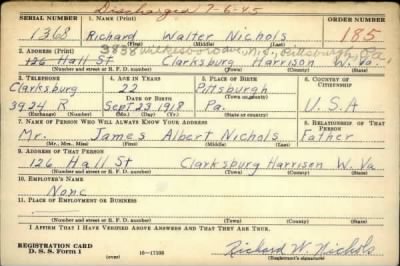 Discharged 7-6-45
SERIAL NUMBER 1. NAME (Print) ORDER NUMBER
1368 Richard Walter Nichols 185
(First) (Middle) (Last)
3838 N.S., Pittsburgh, Pa.
2. ADDRESS (Print)
126 Hall St Clarksburg Harrison W. Va.
(Number and street or R. F. D. number) (Town) (County) (State)
3. TELEPHONE 4. AGE IN YEARS 5. PLACE OF BIRTH 6. COUNTRY OF CITIZENSHIP
Clarksburg 22 Pittsburgh
DATE OF BIRTH (Town or county)
3924 R Sept 23 1918 Pa. U.S.A
(Exchange) (Number) (Mo.) (Day) (Yr.) (State or country)
7. NAME OF PERSON WHO WILL ALWAYS KNOW YOUR ADDRESS 8. RELATIONSHIP OF THAT PERSON
Mr. James Albert Nichols Father
(Mr., Mrs., Miss) (First) (Middle) (Last)
9. ADDRESS OF THAT PERSON
126 Hall St Clarksburg Harrison W. Va
(Number and street or R. F. D. number) (Town) (County) (State)
10. EMPLOYER'S NAME
None
11. PLACE OF EMPLOYMENT OR BUSINESS
(Number and street or R. F. D. number) (Town) (County) (State)
I AFFIRM THAT I HAVE VERIFIED ABOVE ANSWERS AND THAT THEY ARE TRUE.
REGISTRATION CARD
D. S. S. FORM 1 (over) 16-17105 Richard W. Nichols
(Registrant's signature)